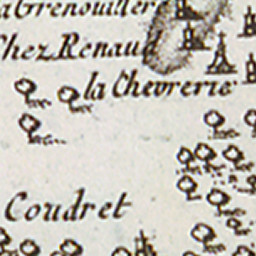 la Grenouillere
Chez Renaud
la Chevrerie
Coudret